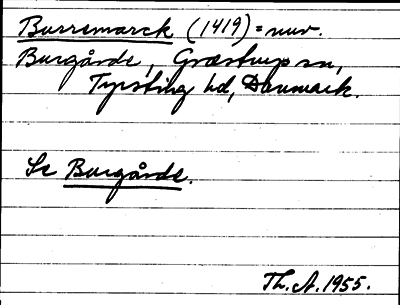 Burremarck (1419) = nuv.
Burgårde, Græstrup sn,
Tyrsting hd, Danmark.
Se Burgårde.
Th. A. 1955.